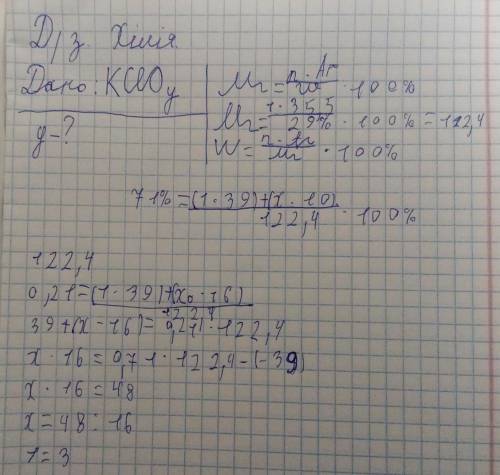 Д/з. Хімія.
Дано: KClOy
y-?
Mr = n · Ar / w · 100%
Mr = 1 · 35,5 / 29% · 100% = 122,4
W = n · Ar / Mr · 100%
71% = (1 · 39) + (x · 10) / 122,4 · 100%
122,4
0,71 = (1 · 39) + (x · 16) / 122,4
39 + (x - 16) = 0,71 · 122,4
x · 16 = 0,71 · 122,4 - (-39)
x · 16 = 48
x = 48 : 16
1 = 3